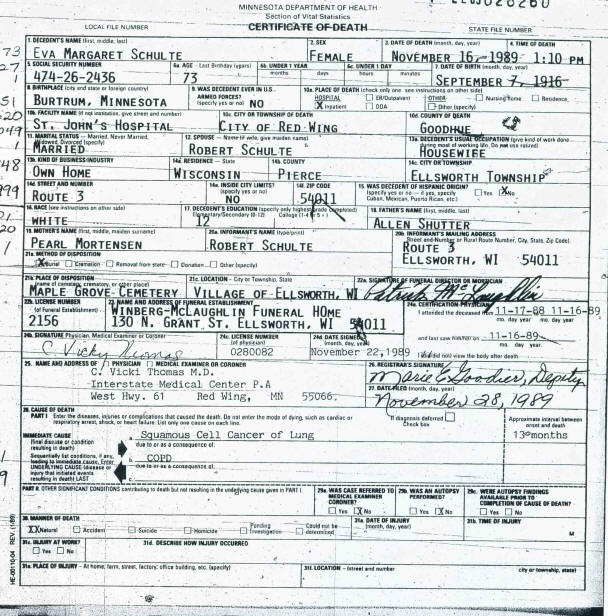 MINNESOTA DEPARTMENT OF HEALTH
Section of Vital Statistics
LOCAL FILE NUMBER CERTIFICATE OF DEATH STATE FILE NUMBER
1. DECEDENT'S NAME (first, middle, last) 2. SEX 3. DATE OF DEATH (month, day, year) 4. TIME OF DEATH
EVA MARGARET SCHULTE FEMALE NOVEMBER 16, 1989 1:10 PM
5. SOCIAL SECURITY NUMBER 6a. AGE - Last Birthday (years) 6b. UNDER 1 YEAR 6c. UNDER 1 DAY 7. DATE OF BIRTH (month, day, year)
months days hours minutes
474-26-2436 73 SEPTEMBER 7, 1916
8. BIRTHPLACE (city and state or foreign country) 9. WAS DECEDENT EVER IN U.S. ARMED FORCES? (specify yes or no) 10a. PLACE OF DEATH (check only one - see instructions on other side)
HOSPITAL OTHER
BURTRUM, MINNESOTA NO X Inpatient ER/Outpatient DOA Nursing home Residence Other (specify)
10b. FACILITY NAME (if not institution, give street and number) 10c. CITY OR TOWNSHIP OF DEATH 10d. COUNTY OF DEATH
ST. JOHN'S HOSPITAL CITY OF RED WING GOODHUE
11. MARITAL STATUS - Married, Never Married, Widowed, Divorced (specify) 12. SPOUSE - Name (if wife, give maiden name) 13a. DECEDENT'S USUAL OCCUPATION (give kind of work done during most of working life. Do not use retired)
MARRIED ROBERT SCHULTE HOUSEWIFE
13b. KIND OF BUSINESS/INDUSTRY 14a. RESIDENCE - State 14b. COUNTY 14c. CITY OR TOWNSHIP
OWN HOME WISCONSIN PIERCE ELLSWORTH TOWNSHIP
14d. STREET AND NUMBER 14e. INSIDE CITY LIMITS? (specify yes or no) 14f. ZIP CODE 15. WAS DECEDENT OF HISPANIC ORIGIN? (specify yes or no - if yes, specify Cuban, Mexican, Puerto Rican, etc.) Yes X No
ROUTE 3 NO 54011
16. RACE (see instructions on other side) 17. DECEDENT'S EDUCATION (specify only highest grade completed) 18. FATHER'S NAME (first, middle, last)
Elementary/Secondary (0-12) College (1-4 or 5+)
WHITE 12 ALLEN SHUTTER
19. MOTHER'S NAME (first, middle, maiden surname) 20a. INFORMANT'S NAME (type/print) 20b. INFORMANT'S MAILING ADDRESS
Street and Number or Rural Route Number, City, State, Zip Code)
PEARL MORTENSEN ROBERT SCHULTE ROUTE 3
ELLSWORTH, WI 54011
21a. METHOD OF DISPOSITION
Burial Cremation Removal from state Donation Other (specify)
21b. PLACE OF DISPOSITION (name of cemetery, crematory, or other place) 21c. LOCATION - City or Township, State 22a. SIGNATURE OF FUNERAL DIRECTOR OR MORTICIAN
MAPLE GROVE CEMETERY VILLAGE OF ELLSWORTH, WI
22b. LICENSE NUMBER (of Funeral Establishment) 23. NAME AND ADDRESS OF FUNERAL ESTABLISHMENT 24a. CERTIFICATION-PHYSICIAN
2156 WINBERG-MCLAUGHLIN FUNERAL HOME
130 N. GRANT ST. ELLSWORTH, WI 54011
I attended the deceased from 11-17-88 11-16-89
mo. day year mo. day year
and last saw 11-16-89
mo. day year
did not view the body after death.
24b. SIGNATURE Physician, Medical Examiner or Coroner 24c. LICENSE NUMBER (of physician) 24d. DATE SIGNED (month, day, year)
C. Vicky Thomas 0280082 November 22, 1989
25. NAME AND ADDRESS OF PHYSICIAN MEDICAL EXAMINER OR CORONER 26. REGISTRAR'S SIGNATURE
C. Vicki Thomas M.D. Marie E. Goodier, Deputy
Interstate Medical Center P.A
West Hwy. 61 Red Wing, MN 55066.
27. DATE FILED (month, day, year)
November 28, 1989
28. CAUSE OF DEATH
PART I Enter the diseases, injuries or complications that caused the death. Do not enter the mode of dying, such as cardiac or respiratory arrest, shock, or heart failure. List only one cause on each line. If diagnosis deferred Check box Approximate interval between onset and death
IMMEDIATE CAUSE (final disease or condition resulting in death) Squamous Cell Cancer of Lung 13 months
due to or as a consequence of:
Sequentially list conditions, if any, leading to immediate cause. Enter UNDERLYING CAUSE (disease or injury that initiated events resulting in death) LAST
COPD
due to or as a consequence of:
PART II. OTHER SIGNIFICANT CONDITIONS contributing to death but not resulting in the underlying cause given in PART I. 29a. WAS CASE REFERRED TO MEDICAL EXAMINER CORONER? Yes X No 29b. WAS AN AUTOPSY PERFORMED? Yes X No 29c. WERE AUTOPSY FINDINGS AVAILABLE PRIOR TO COMPLETION OF CAUSE OF DEATH? Yes No
30. MANNER OF DEATH
XX Natural Accident Suicide Homicide Pending Investigation Could not be determined 31a. DATE OF INJURY (month, day, year) 31b. TIME OF INJURY M
31c. INJURY AT WORK? Yes No 31d. DESCRIBE HOW INJURY OCCURRED
31e. PLACE OF INJURY - At home, farm, street, factory, office building, etc. (specify) 31f. LOCATION - (street and number city or township, state)
HE-00110-04 REV. (1/89)